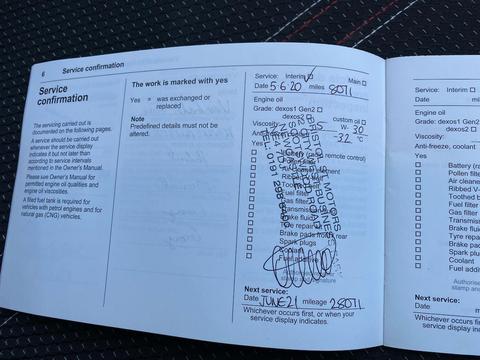 6 Service confirmation
Service
confirmation
The servicing carried out is
documented on the following pages.
A service should be carried out
whenever the service display
indicates it but not later than
according to service intervals
mentioned in the Owner's Manual.
Please see Owner's Manual for
permitted engine oil qualities and
engine oil viscosities.
A filled gas tank is required for
vehicles with petrol engines and for
natural gas (CNG) vehicles.
The work is marked with yes
Yes = was exchanged or
replaced
Note
Predefined details must not be
altered.
Service: Interim Main
Date 5-6-20 miles 8071
Engine oil
Grade: dexos1 Gen2
dexos2 Custom oil
Viscosity: 5 W- 30
-32 °C
Yes
Brake fluid
Tyre repair
Brake pads front rear
Spark plugs
Coolant
Fuel additive
Next service:
Date JUNE 21 mileage 28071
Whichever occurs first, or when your
service display indicates.
Service: Interim
Date
Engine oil
Grade: dexos1 Gen2
dexos2
Viscosity:
Anti-freeze, coolant
Yes
Battery
Pollen
Air
Ribbed V-
Toothed
Fuel filter
Gas filter
Brake fluid
Tyre
Brake
Spark
Coolant
Fuel
Next service:
Date
Whichever occurs
service display